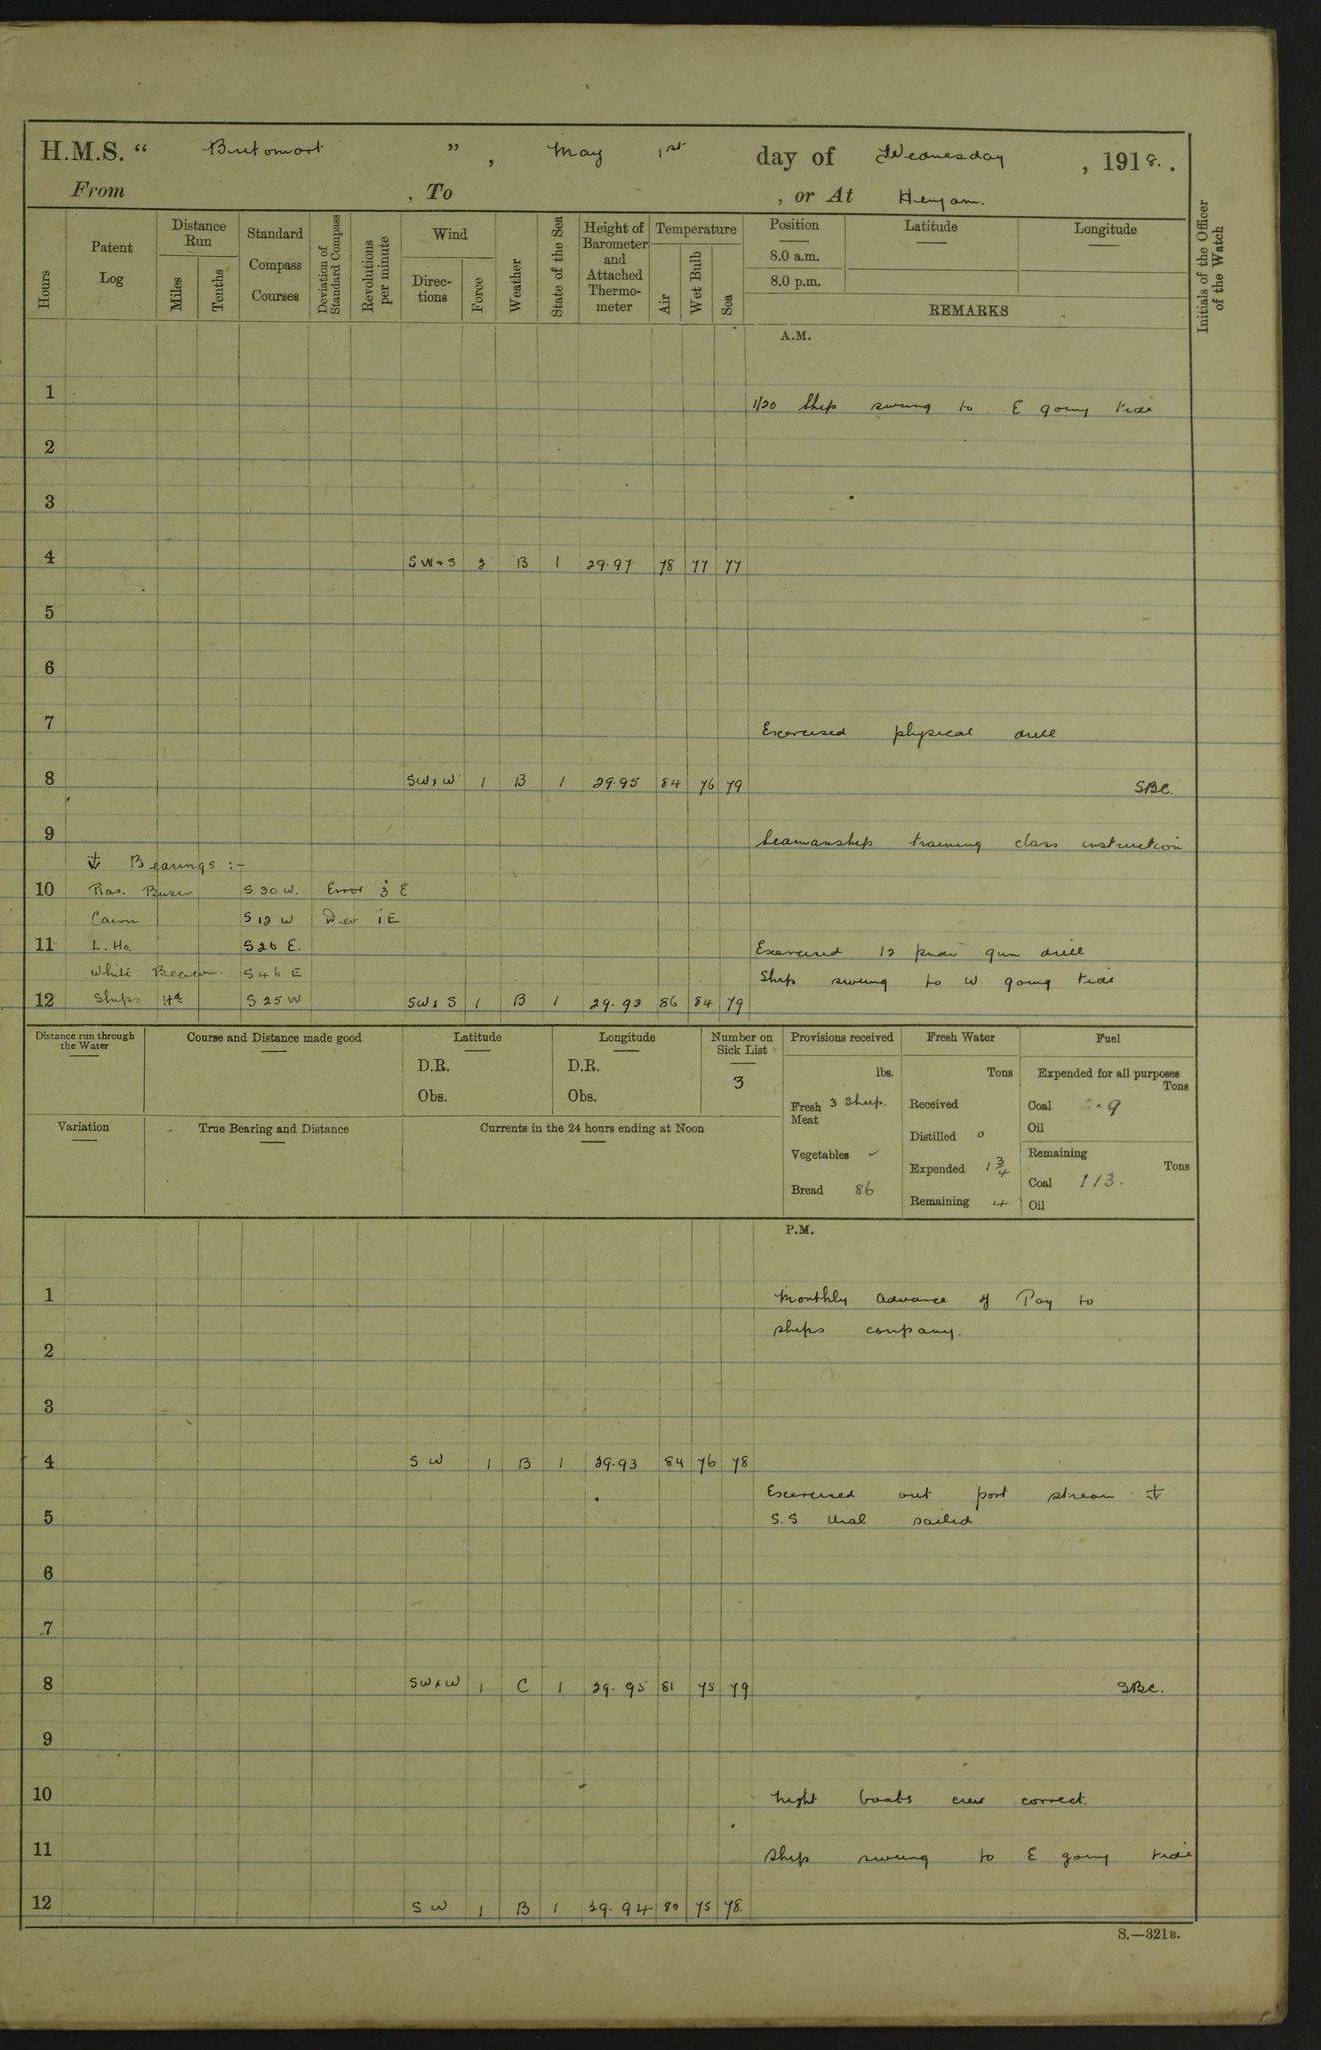 H.M.S. “ Britomart ”, May 1st day of Wednesday, 1918.
From , To , or At Henjam.
Hours
Patent Log
Distance Run
Miles
Tenths
Standard Compass Courses
Deviation of Standard Compass
Revolutions per minute
Wind
Directions
Force
Weather
State of the Sea
Height of Barometer and Attached Thermometer
Temperature
Air
Wet Bulb
Sea
Position
8.0 a.m.
8.0 p.m.
Latitude
Longitude
REMARKS
Initials of the Officer of the Watch
A.M.
1
1/20 Ship swung to E going tide
2
3
4 SW x S 2 B 1 29.97 78 77 77
5
6
7
Exercised physical drill
8 SW x W 1 B 1 29.95 84 76 79 SBC.
9
Seamanship training class instruction
⚓ Bearings :-
10 Ras. S 30 W. Error 3° E
Cairn S 12 W Dev 1° E
11 L. Ho. S 26 E. Exercised 12 pndr gun drill
White Beacon. S 46 E Ship swung to W going tide
12 Ships Hd. S 25 W SW x S 1 B 1 29.93 86 84 79
Distance run through the Water
Course and Distance made good
Latitude
D.R.
Obs.
Longitude
D.R.
Obs.
Number on Sick List
3
Provisions received
lbs.
Fresh Meat 3 Sheep.
Vegetables ✓
Bread 86
Fresh Water
Tons
Received
Distilled 0
Expended 1 3/4
Remaining 4
Fuel
Expended for all purposes
Tons
Coal 9
Oil
Remaining
Tons
Coal 113.
Oil
Variation
True Bearing and Distance
Currents in the 24 hours ending at Noon
P.M.
1
Monthly advance of Pay to
ships company.
2
3
4 SW 1 B 1 29.93 84 76 78
Exercised out port stream ⚓
5 S.S Ural sailed
6
7
8 SW x W 1 C 1 29.95 81 75 79 SBC.
9
10 Night boats crew correct.
11 Ship swung to E going tide
12 SW 1 B 1 29.94 80 75 78.
S.—321B.